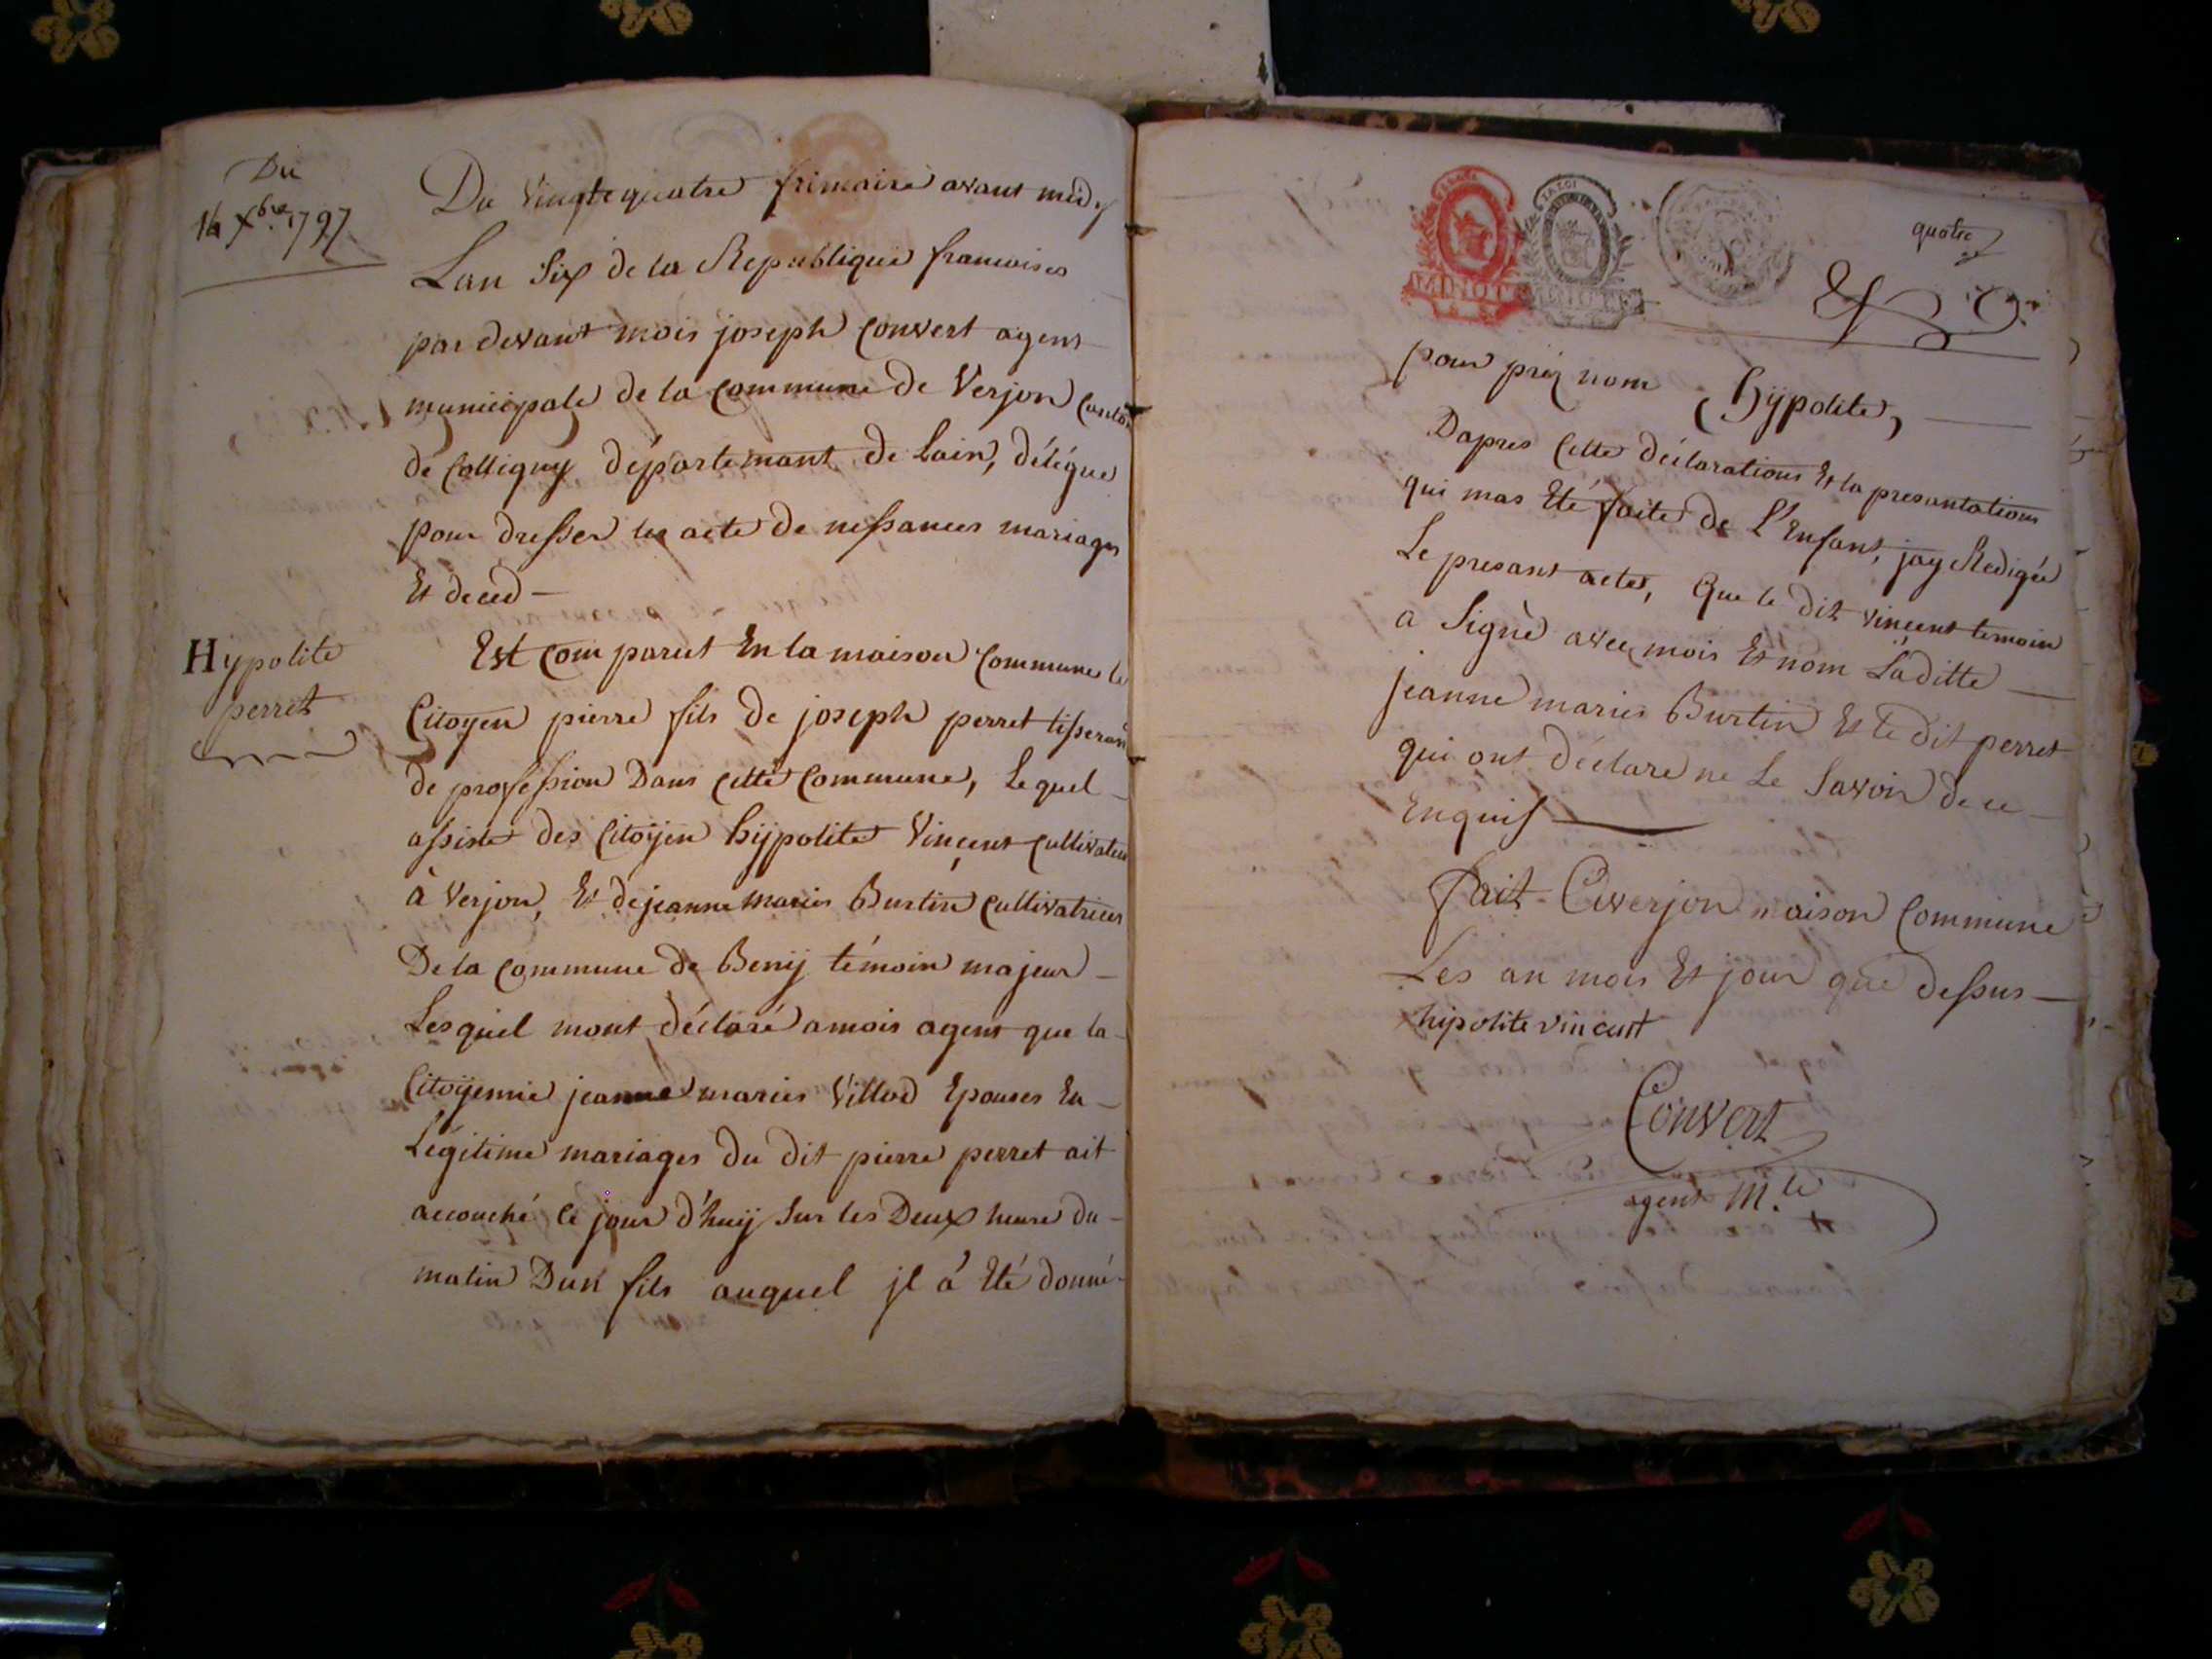 Du
14 Xbre 1797
Du Vingte quatre frimaire avant midy
Lan Six de la Republique francoises
par devant mois joseph Convert agent
municipale de la Commune de Verjon Canton
de Colligny département de Lain, délégue
pour dresser les acte de nessances mariages
Et deced —
Hypolite
perret
Est Com parut En la maison Commune le
Citoyen pierre fils de joseph perret tisseran
de profession Dans Cette Commune, Lequel
assiste des Citoÿen hÿpolite Vincent Cultivateur
à Verjon, Et de jeanne maries Burtin Cultivatrices
De la Commune de Benÿ témoin majeur
Lesquel mont déclaré amois agent que la
Citoÿenne jeanne maries Villod Epouses En
Légitime mariages du dit pierre perret ait
accouché Ce jour d'huÿ Sur les Deux heure du
matin Dun fils auquel jl á Eté donné
quatre
MINUTE
pour prés nom hÿpolite,
Dapres Cette déclarations Et la presantations
qui mas Eté faite de L'Enfant, jay Redigée
Le presant actes, Que le dit Vincent temoin
a Signè avec mois Et nom Laditte
jeanne maries Burtin Et le dit perret
qui ont déclare ne Le Savoir de ce
Enquis
Fait Averjon maison Commune
Les an mois Et jour que dessus
hipolite vincent
Convert
agent m.le